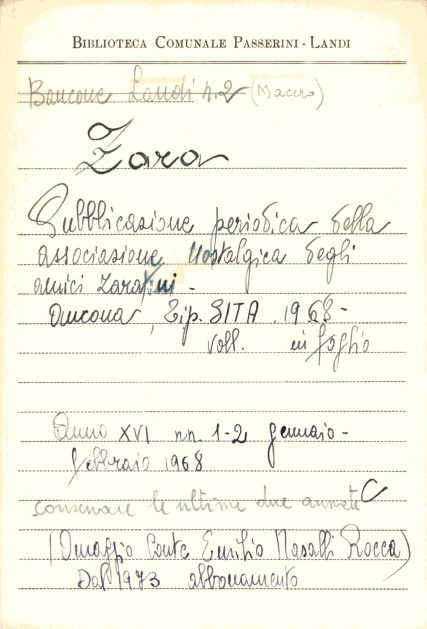 BIBLIOTECA COMUNALE PASSERINI - LANDI
Bancone Landi n. 2 (Macero)
Zara
Pubblicazione periodica della
associazione Nostalgica degli
amici Zaratini -
Ancona, Tip. SITA. 1968 -
voll. in foglio
Anno XVI nn. 1-2 gennaio -
febbraio 1968
conservare le ultime due annate C
(Omaggio Conte Emilio Nasalli Rocca)
Dal 1973 abbonamento